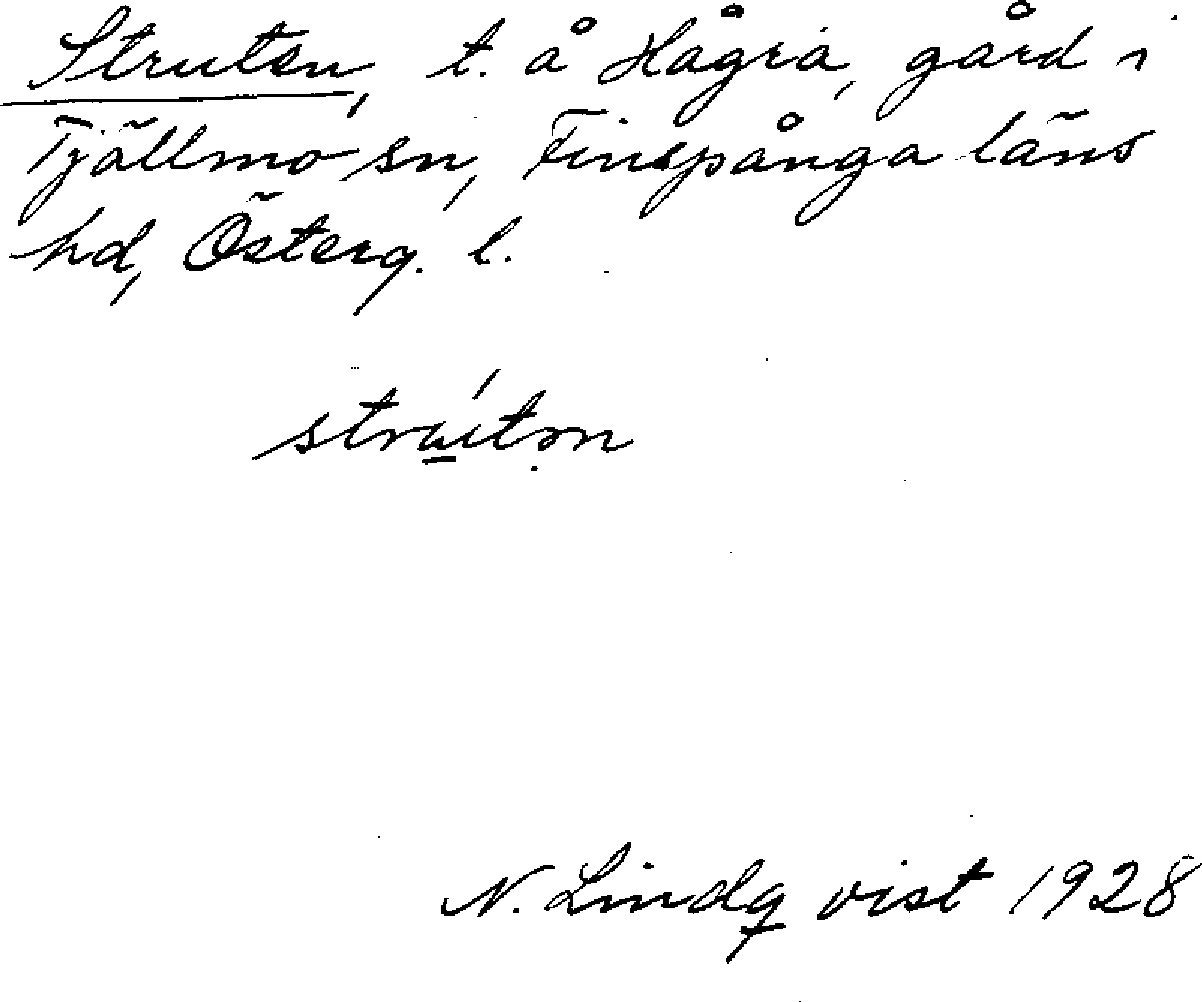 Struten, t. å Hågra, gård i
Tjällmo sn, Finspånga läns
hd, Österg. l.
strútən
N. Lindqvist 1928